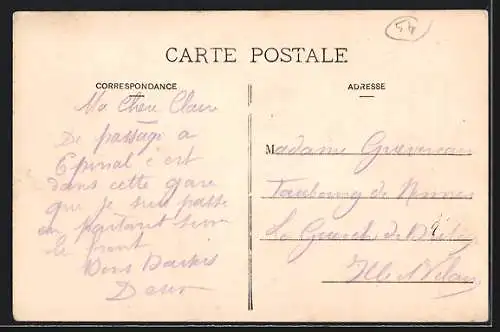 54
CARTE POSTALE
CORRESPONDANCE
ADRESSE
Ma Chere Claire
De passage a
Epinal c'est
dans cette gare
que je suis passe
en partant
le front
Bons Baisers
Madame
Faubourg de
La Guerche de
Ille et Vilaine